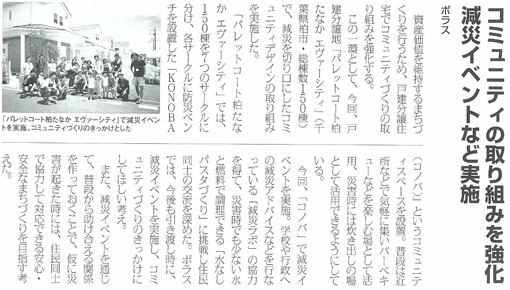 コミュニティの取り組みを強化
減災イベントなど実施
ポラス
資産価値を維持するまちづ
くりを行うため、戸建分譲住
宅でコミュニティづくりの取
り組みを強化する。
この一環として、今回、戸
建分譲地「パレットコート柏
たなか エヴァーシティ」(千
葉県柏市・総棟数150棟)
で、減災を切り口にしたコミ
ュニティデザインの取り組み
を実施した。
「パレットコート柏たな
か エヴァーシティ」では、
150棟を7つのサークルに
分け、各サークルに防災ベン
チを設置した「KONOBA
「パレットコート柏たなか エヴァーシティ」で減災イベン
トを実施。コミュニティづくりのきっかけとした
(コノバ)」というコミュニテ
ィスペースを設置。普段は近
所などで気軽に集いバーベキ
ューなどを楽しむ場として活
用、災害時には炊き出しの場
として活用できるようにして
いる。
今回、「コノバ」で減災イ
ベントを実施。学校や行政へ
の減災アドバイスなどを行な
っている「減災ラボ」の協力
を得て、災害時でも少ない水
と燃料で調理できる「水なし
パスタづくり」に挑戦し住民
同士の交流を深めた。ポラス
では、今後も引き渡し時に、
減災イベントを実施し、コミ
ュニティづくりのきっかけに
してほしい考え。
また、減災イベントを通じ
て、普段から助け合える関係
を作っておくことで、仮に災
害が起きた時には、住民同士
で協力して対応できる安心・
安全なまちづくりを目指す考
えだ。